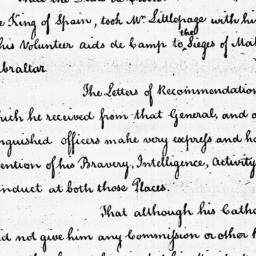 King of Spain, took Mr. Littlepage with hi
his Volunteer aids de Camp to the Sieges of Ma
ibraltar
The Letters of Recommendation
hich he received from that General, and o
nguished officers make very express and h
ention of his Bravery, Intelligence, Activity
onduct at both those Places.
That although his Catho
id not give him any Commission or other